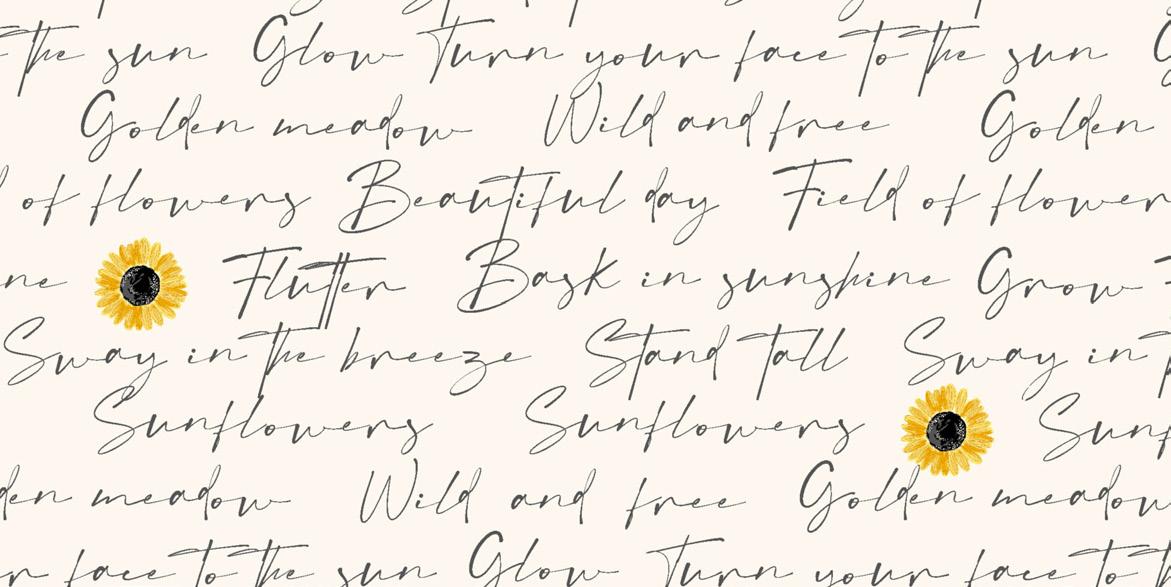 the sun Glow Turn your face to the sun
Golden meadow Wild and free Golden
of flowers Beautiful day Field of flower
ne Flutter Bask in sunshine Grow
Sway in the breeze Stand tall Sway in
Sunflowers Sunflowers Sunf
den meadow Wild and free Golden meadow
r face to the sun Glow Turn your face to